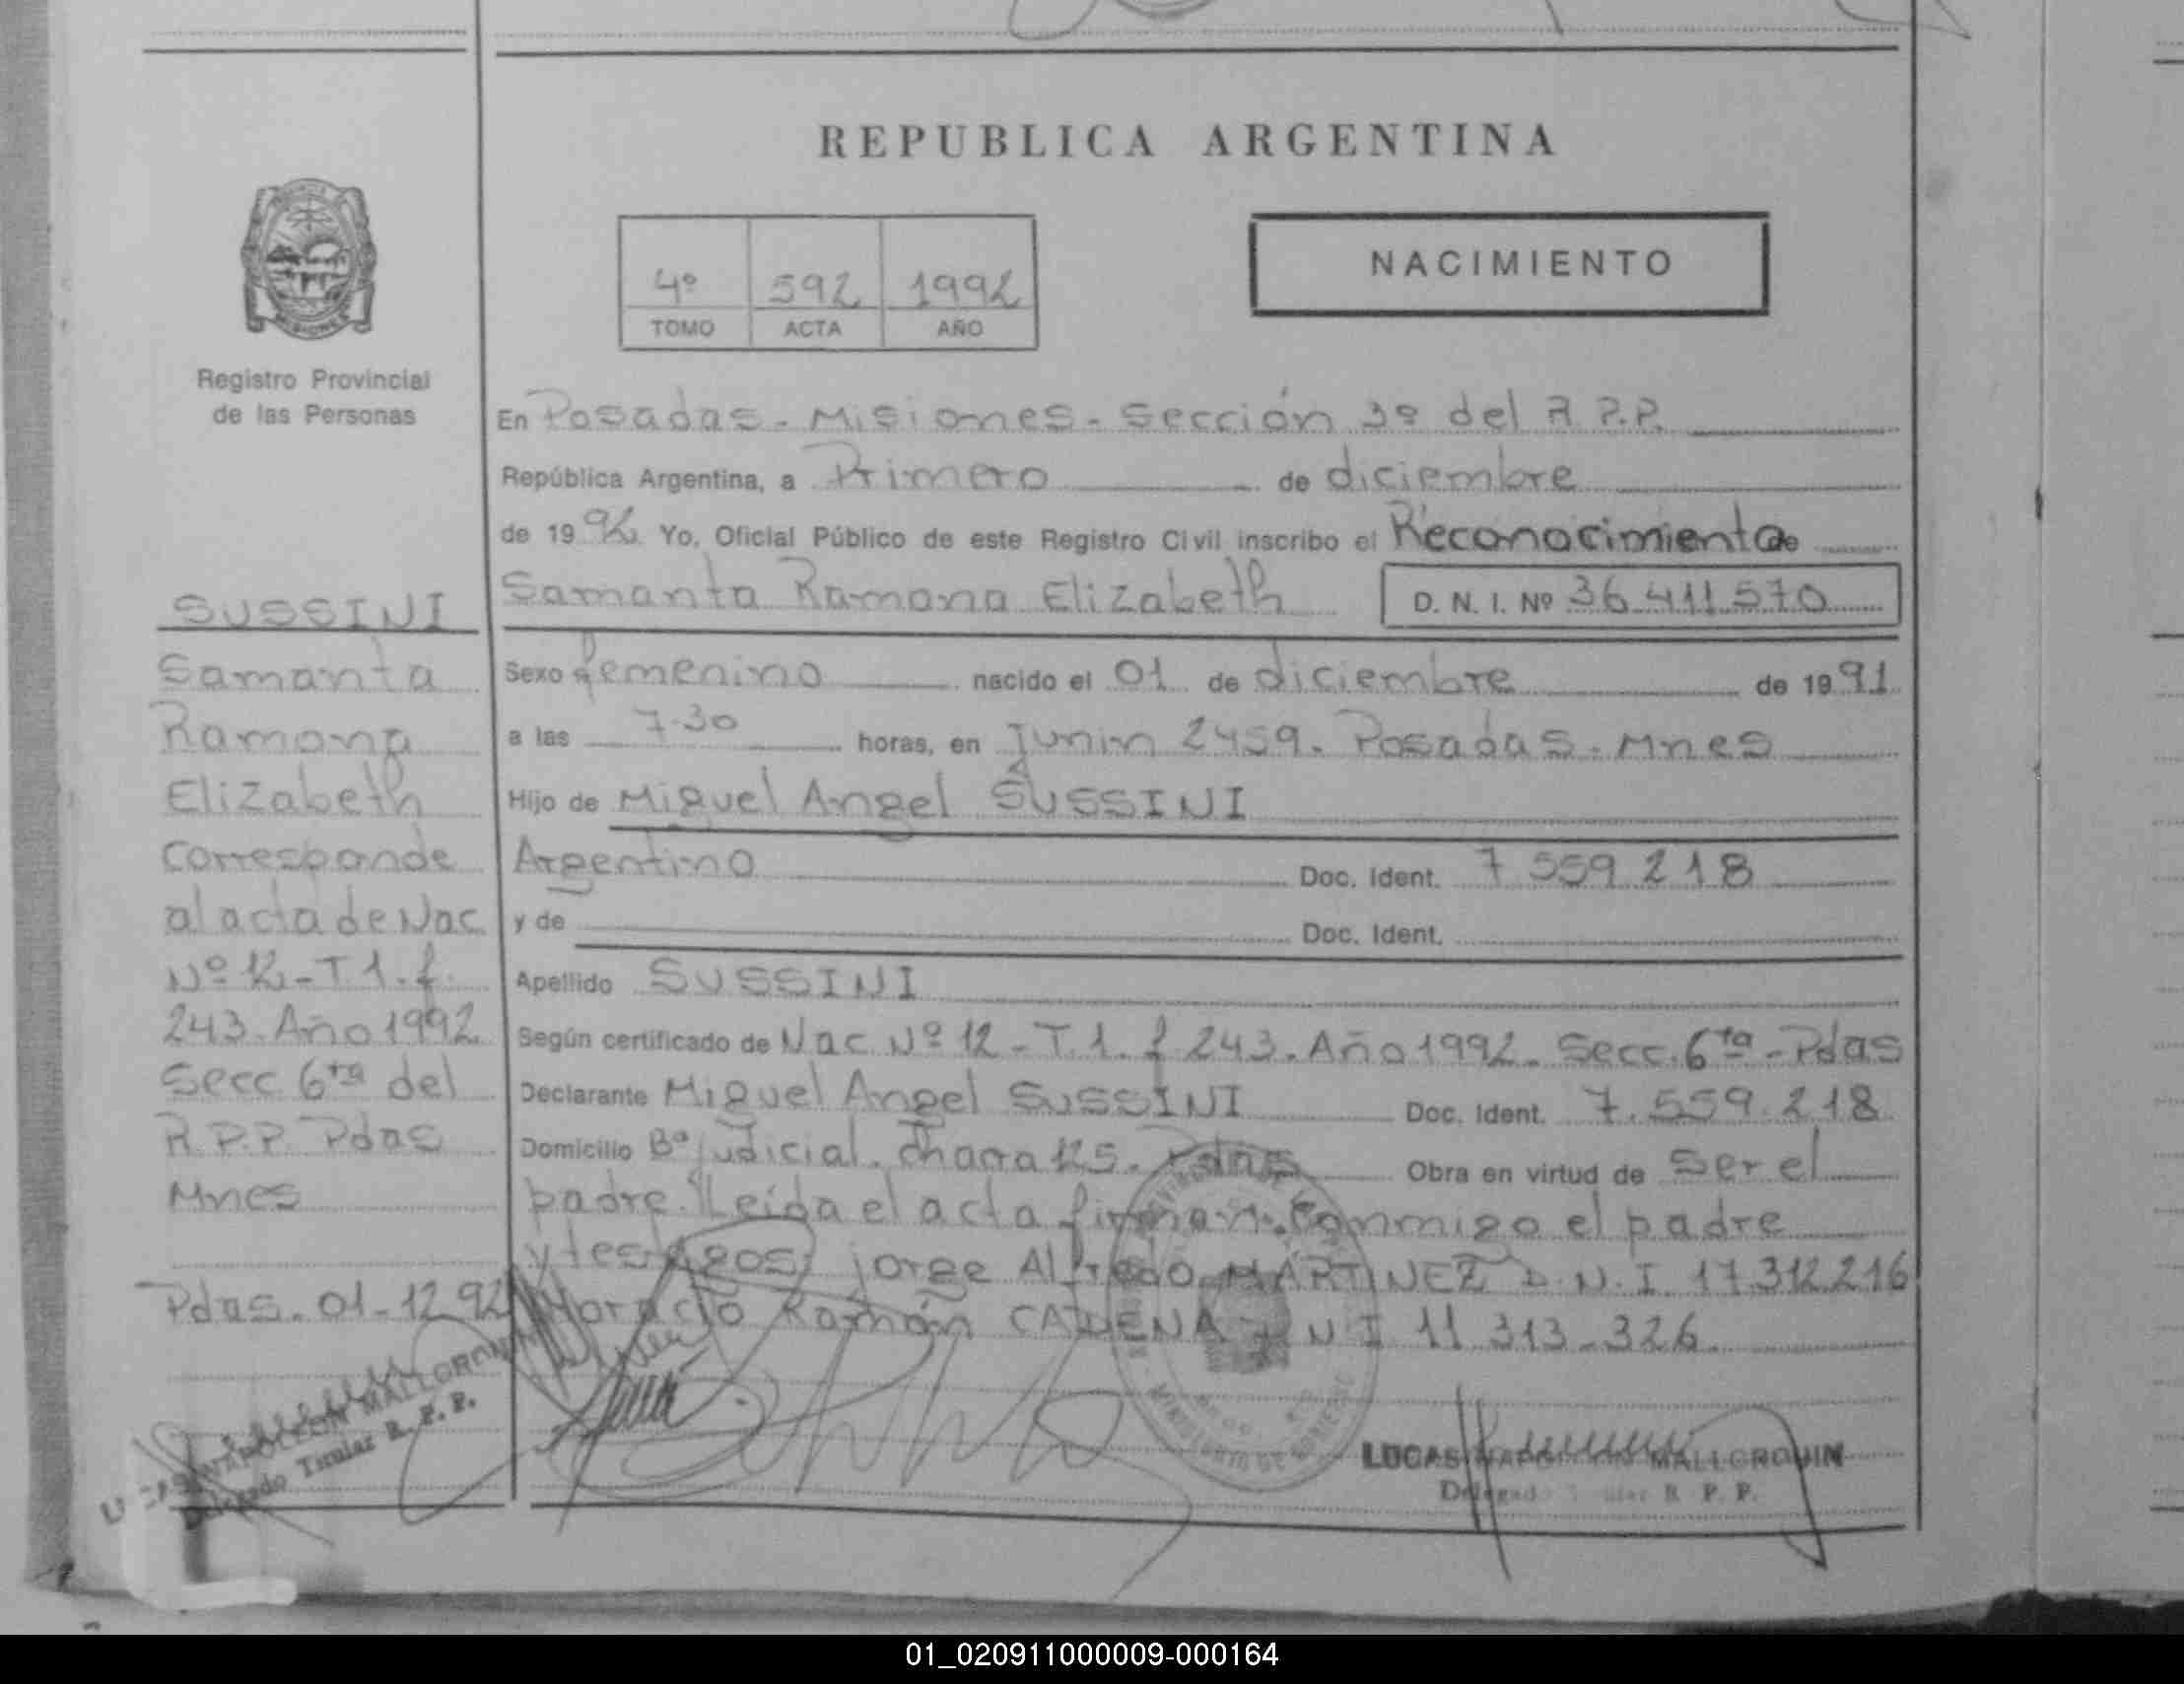 REPUBLICA ARGENTINA
MISIONES
Registro Provincial
de las Personas
4º 592 1992
TOMO ACTA AÑO
NACIMIENTO
En Posadas - Misiones - Sección 3º del R.P.P.
República Argentina, a Primero de diciembre
de 19 92 Yo, Oficial Público de este Registro Civil inscribo el Reconocimiento de
Samanta Ramona Elizabeth D. N. I. Nº 36.411.570
Sexo femenino nacido el 01 de diciembre de 19 91
a las 7-30 horas, en Junin 2459. Posadas - Mnes
Hijo de Miguel Angel SUSSINI
Argentino Doc. Ident. 7 559 218
y de Doc. Ident.
Apellido SUSSINI
Según certificado de Nac Nº 12 - T.1. f 243. Año 1992. Secc. 6ta - Pdas
Declarante Miguel Angel SUSSINI Doc. Ident. 7.559.218
Domicilio Bº Judicial. Chacra 125. Pdas Obra en virtud de Ser el
padre. Leída el acta firman conmigo el padre
y testigos: jorge Alfredo MARTINEZ D.N.I. 17.312.216
Horacio Ramón CADENA D N I 11 313-326.
SUSSINI
Samanta
Ramona
Elizabeth
Corresponde
al acta de Nac
Nº 12 - T.1. f.
243. Año 1992
Secc 6ta del
R.P.P. Pdas
Mnes
Pdas. 01-12 92
NAPOLEON MALLORQUIN
Delegado Titular R. P. P.
LUCAS MALLORQUIN
Delegado R. P. P.
01_020911000009-000164